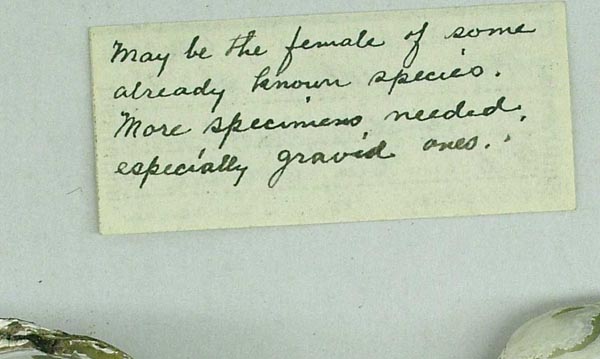 May be the female of some
already known species.
More specimens needed,
especially gravid ones.